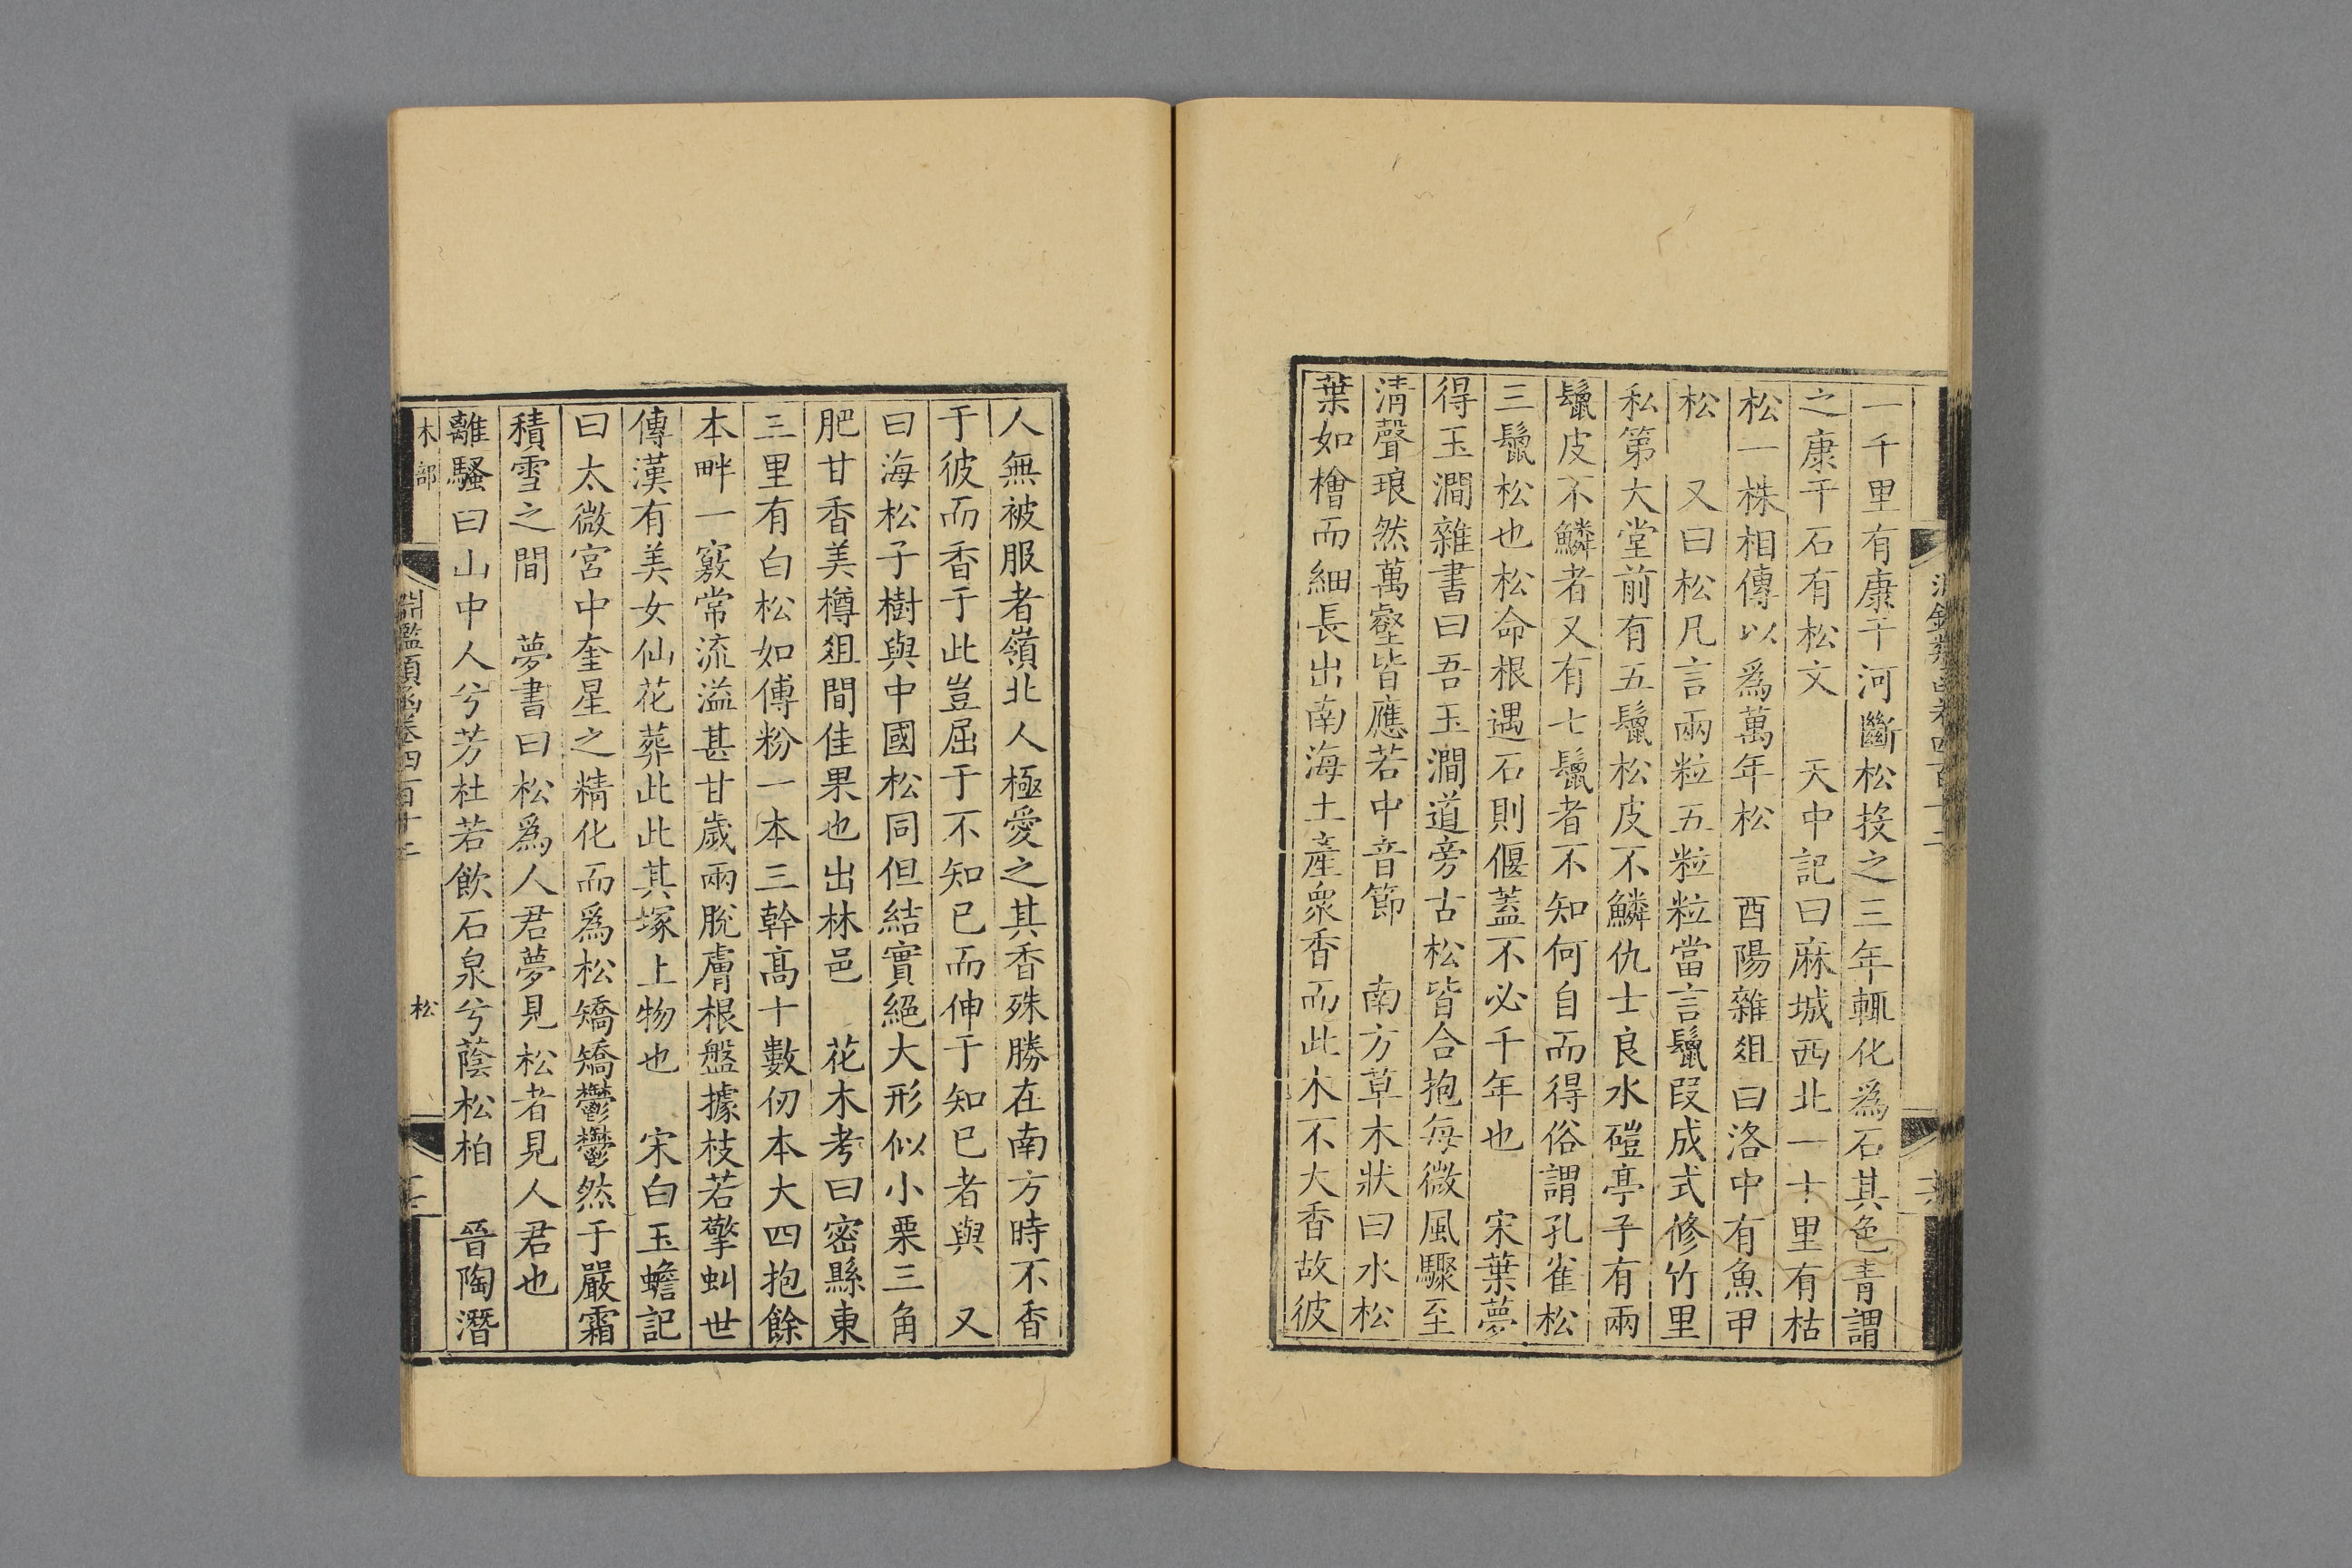 一千里有康干河斷松投之三年輒化爲石其色青謂
之康干石有松文　天中記曰麻城西北一十里有枯
松一株相傳以爲萬年松　酉陽雜俎曰洛中有魚甲
松　又曰松凡言兩粒五粒粒當言鬣段成式修竹里
私第大堂前有五鬣松皮不鱗仇士良水磑亭子有兩
鬣皮不鱗者又有七鬣者不知何自而得俗謂孔雀松
三鬣松也松命根遇石則偃蓋不必千年也　宋葉夢
得玉澗雜書曰吾玉澗道旁古松皆合抱每微風驟至
清聲琅然萬壑皆應若中音節　南方草木狀曰水松
葉如檜而細長出南海土產衆香而此木不大香故彼
人無被服者嶺北人極愛之其香殊勝在南方時不香
于彼而香于此豈屈于不知已而伸于知已者與　又
曰海松子樹與中國松同但結實絕大形似小栗三角
肥甘香美樽俎間佳果也出林邑　花木考曰密縣東
三里有白松如傅粉一本三幹高十數仞本大四抱餘
本畔一竅常流溢甚甘歲兩脫膚根盤據枝若擎虬世
傳漢有美女仙花葬此此其塚上物也　宋白玉蟾記
曰太微宮中奎星之精化而爲松矯矯鬱鬱然于嚴霜
積雪之間　夢書曰松爲人君夢見松者見人君也
離騷曰山中人兮芳杜若飲石泉兮蔭松柏　晉陶潛
木部　淵鑑類函卷四百十二　松